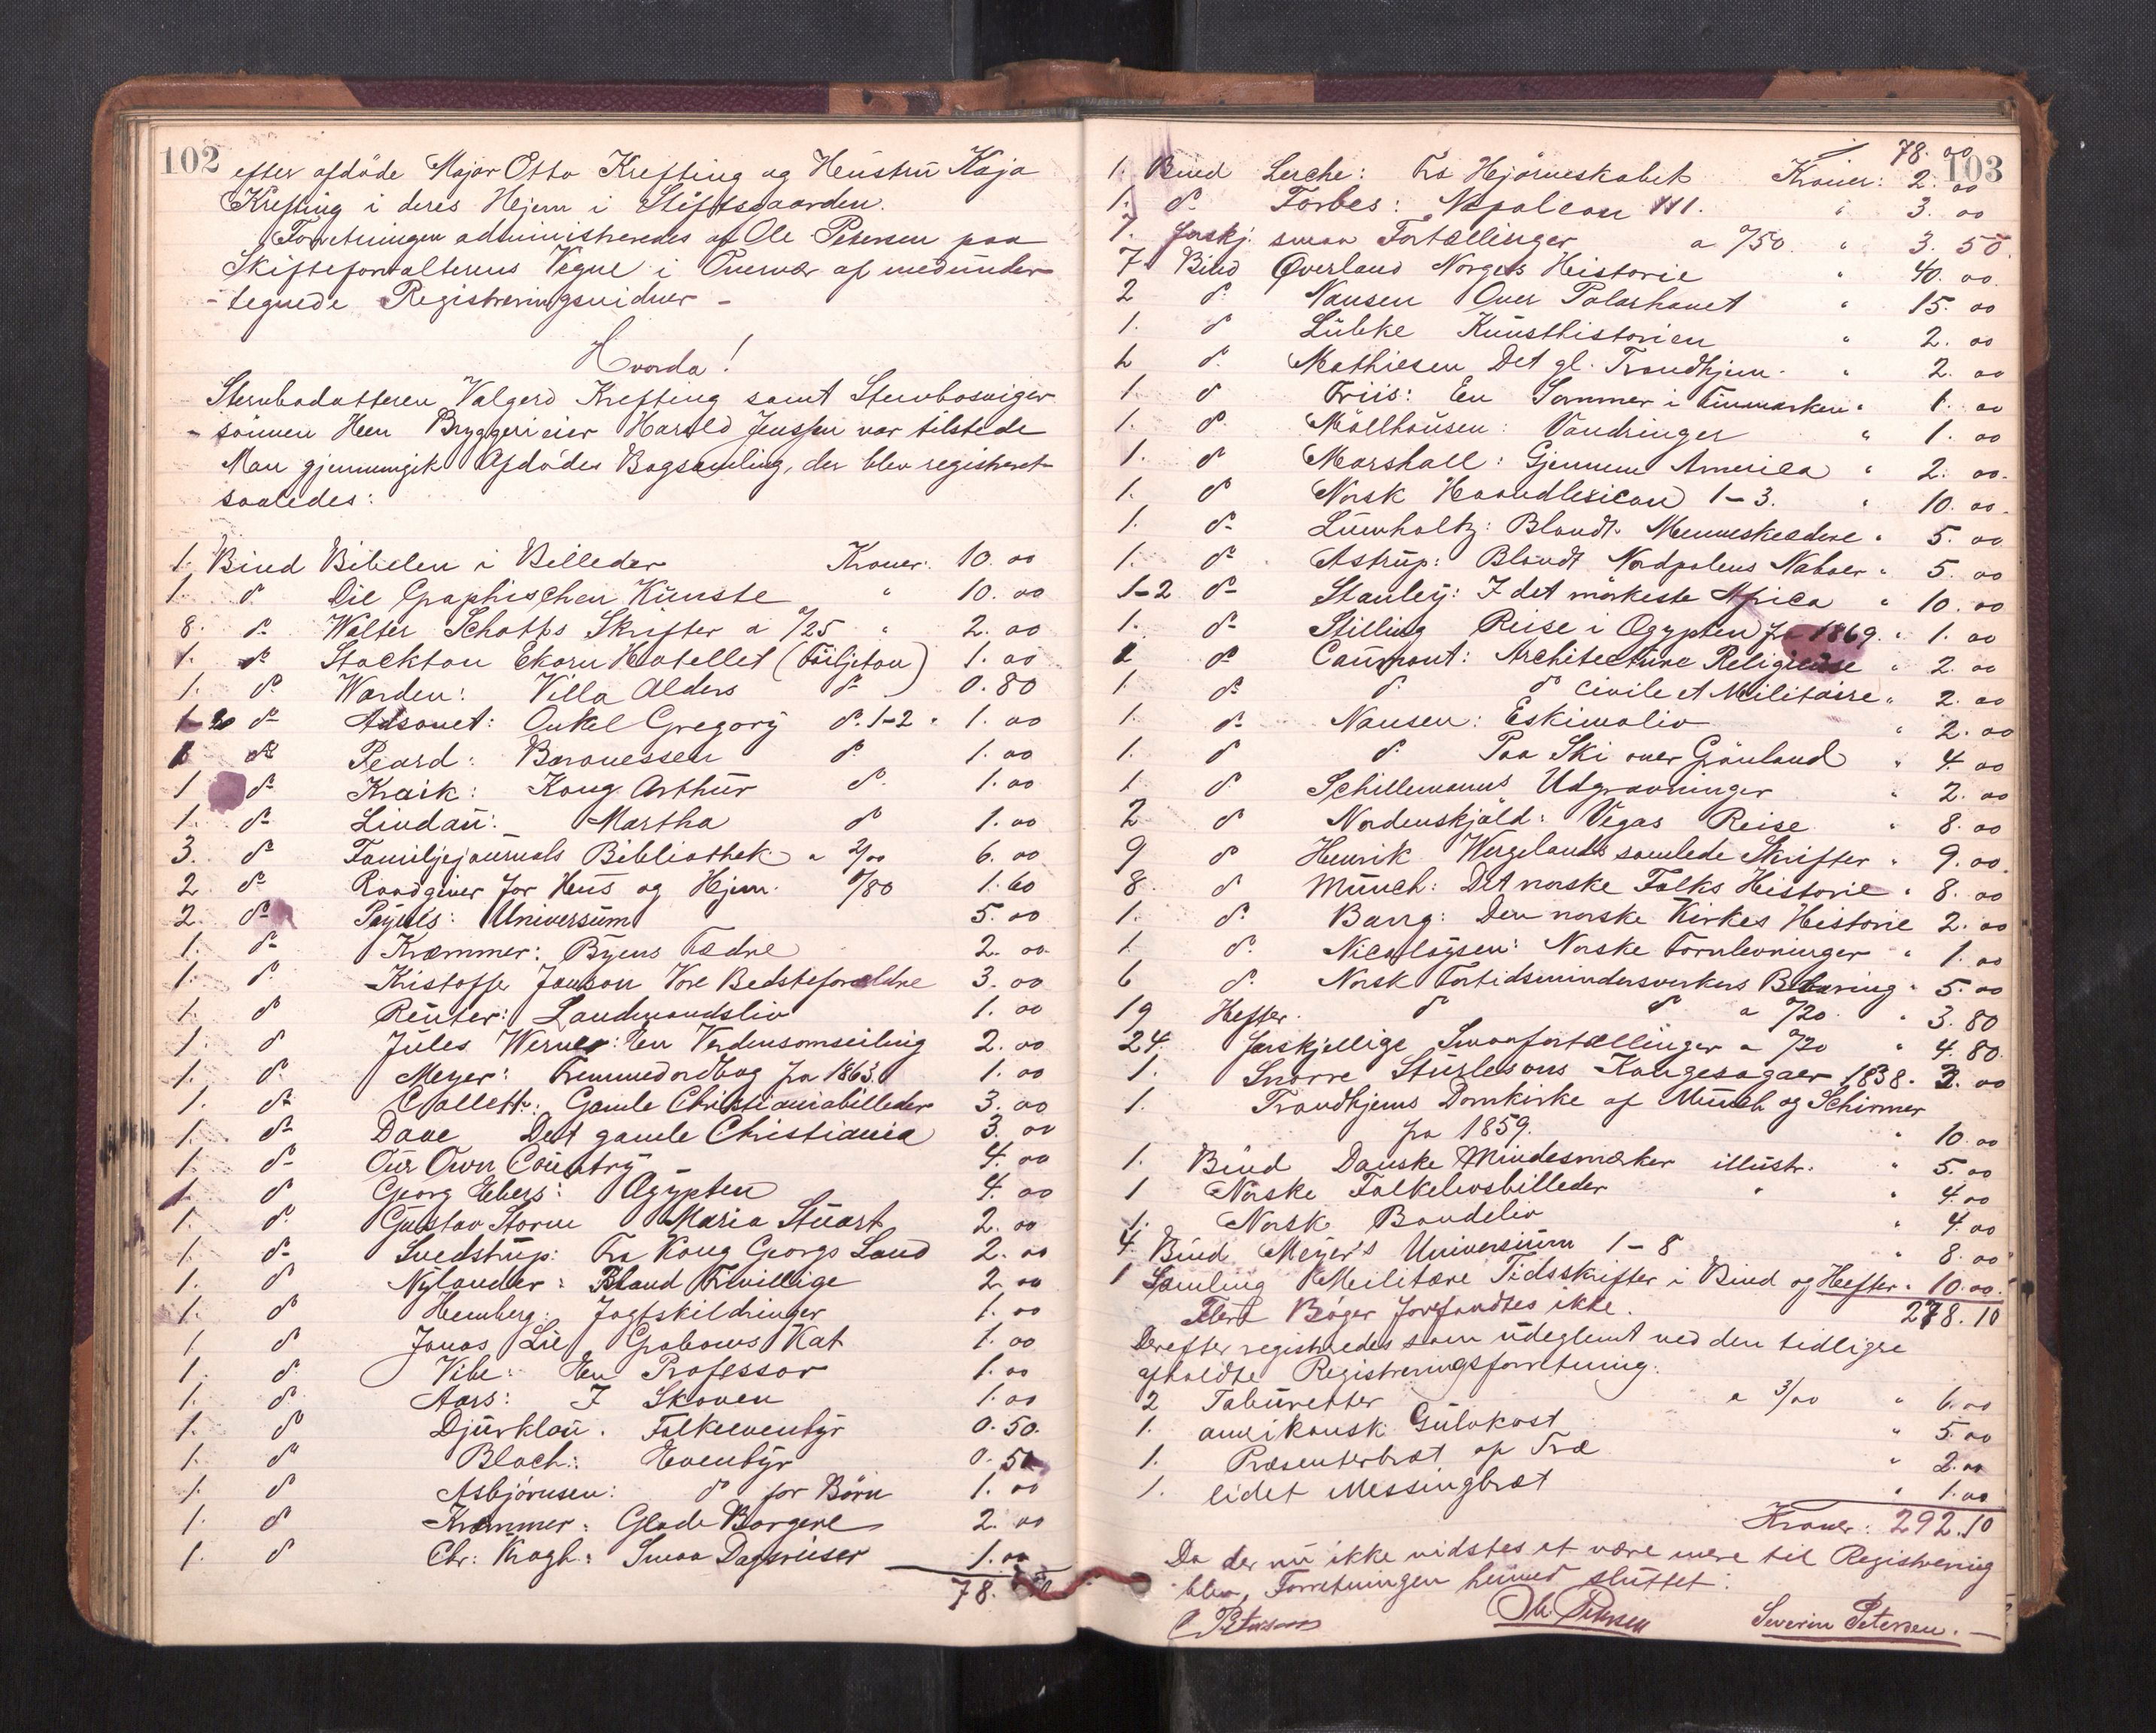 102
efter afdöde Major Otto Krefting og Hustru Kaja
Krefting i deres Hjem i Stiftsgaarden.
Forretningen administreredes af Ole Petersen paa
Skifteforvalterens Vegne i Overvær af medunder-
-tegnede Registreringsvidner -
Hvorda!
Stervbodatteren Valgerd Krefting samt Stervbosviger-
-sönnen Herr Bryggerieier Harald Jenssen var tilstede
Man gjennemgik Afdödes Bogsamling, der blev registreret
saaledes:
1. Bind Bibelen i Billeder Kroner: 10. 00
1. do Die Graphischen Künste " 10. 00
8. do Walter Schotts Skrifter a 0/25 " 2. 00
1. do Stockton Ekorn Hotellet (Föiljeton) 1. 00
1. do Warden: Villa Alders do ) 0. 80
1-2 do Onkel Gregory do. 1-2 " 1. 00
1 do Peard: Baronessen do 1. 00
1 do Kraik: Kong Arthur do. 1. 00
1. do Lindau: Martha do 1. 00
3. do Familjejournals Bibliothek a 2/00 6. 00
2. do Raadgiver for Hus og Hjem. 0/80 1. 60
2. do Universum 5. 00
1. do Kræmmer: Byens Fædre 2. 00
1. do Kristoffer Janson Vore Bedsteforældre 3. 00
1. do Reuter: Landmandsliv 1. 00
1. do Jules Werner: En Verdensomseiling 2. 00
1. do Meyer: Fremmedordbog fra 1863. 1. 00
1. do Collett: Gamle Christianiabilleder 3. 00
1. do Daae Det gamle Christiania 3. 00
1. do Our Own Country 4. 00
1. do Georg Ebers: Ægypten 4. 00
1. do Gustav Storm Maria Stuart 2. 00
1. do Svedstrup: Fra Kong Georgs Land 2. 00
1. do Nylander: Bland Frivillige 2. 00
1. do Hemberg: Jagtskildringer 1. 00
1. do Jonas Lie Grabows Kat 1. 00
1. do Vibe: En Professor 1. 00
1. do Aars: I Skoven 1. 00
1. do Djurklou. Folkeeventyr 0. 50.
1. do Bloch: Eventyr 0. 50
1. do Asbjörnsen: do for Börn 1. 00
1. do Kræmmer: Glade Borgere 2. 00
1. do Chr: Krogh: Smaa Dagsreiser 1. 00
78.
103
78. 00
1. Bind Lerche: Fra Hjörneskabet Kroner: 2. 00
1. do Forbes: Napoleon III. " 3. 00
7. forskj. smaa Fortællinger a 0/50 " 3. 50.
7 Bind Øverland Norges Historie " 40. 00.
2 do Nansen Over Polarhavet " 15. 00
1. do Lübke Kunsthistorien " 2. 00
2 do Mathiesen Det gl. Trondhjem. " 2. 00
1. do Friis: En Sommer i Finmarken " 1. 00
1. do Möllhausen: Vandringer " 1. 00
1. do Marshall: Gjennem Amerika " 2. 00.
1. do Norsk Haandlexicon 1-3. " 10. 00.
1. do Lumholtz: Blandt Menneskeædere " 5. 00
1. do Astrup: Blandt Nordpolens Naboer " 5. 00
1-2 do Stanley: I det mörkeste Africa " 10. 00
1. do Stilling Reise i Ægypten fra 1869. " 1. 00
1 do Caumont: Architecture Religieuse " 2. 00
1. do do do civile et Militaire " 2. 00
1. do Nansen: Eskimoliv " 2. 00
1. do do Paa Ski over Grönland " 4. 00
1. do Schillemanns Udgravninger " 2. 00
2 do Nordenskjöld: Vegas Reise " 8. 00
9 do Henrik Wergelands samlede Skrifter " 9. 00.
8. do Munch: Det norske Folks Historie " 8. 00
1. do Bang: Den norske Kirkes Historie 2. 00
1. do Nicolaysen: Norske Fornlevninger " 1. 00
6 do Norsk Fortidsmindersverkers Bevaring " 5. 00
19 Hefter. do do a 0/20. " 3. 80
24. forskjellige Smaafortællinger a 0/20 " 4. 80.
1. Snorre Sturlesons Kongesagaer 1838. 00
1. Trondhjems Domkirke af Munch og Schirmer
fra 1859. " 10. 00
1. Bind Danske Mindesmærker illustr. " 5. 00
1 Norske Folkelivsbilleder " " 4. 00
1. Norsk Bondeliv " 4. 00
4. Bind Meyer's Universum 1-8 " 8. 00
1 Samling Militære Tidsskrifter i Bind og Hefter " 10. 00.
Flere Böger forefandtes ikke. 278. 10
Derefter registredes som udeglemt ved den tidligere
afholdte Registreringsforretning:
2 Taburetter a 3/00 " 6. 00
1. amerikansk Gulvkost " 5. 00
1. Præsenterbræt af Træ " 2. 00
1. lidet Messingbræt " 1. 00
Kroner: 292. 10
Da der nu ikke vidstes at være mere til Registrering
blev Forretningen hermed sluttet:
Ole Petersen Severin Petersen. -